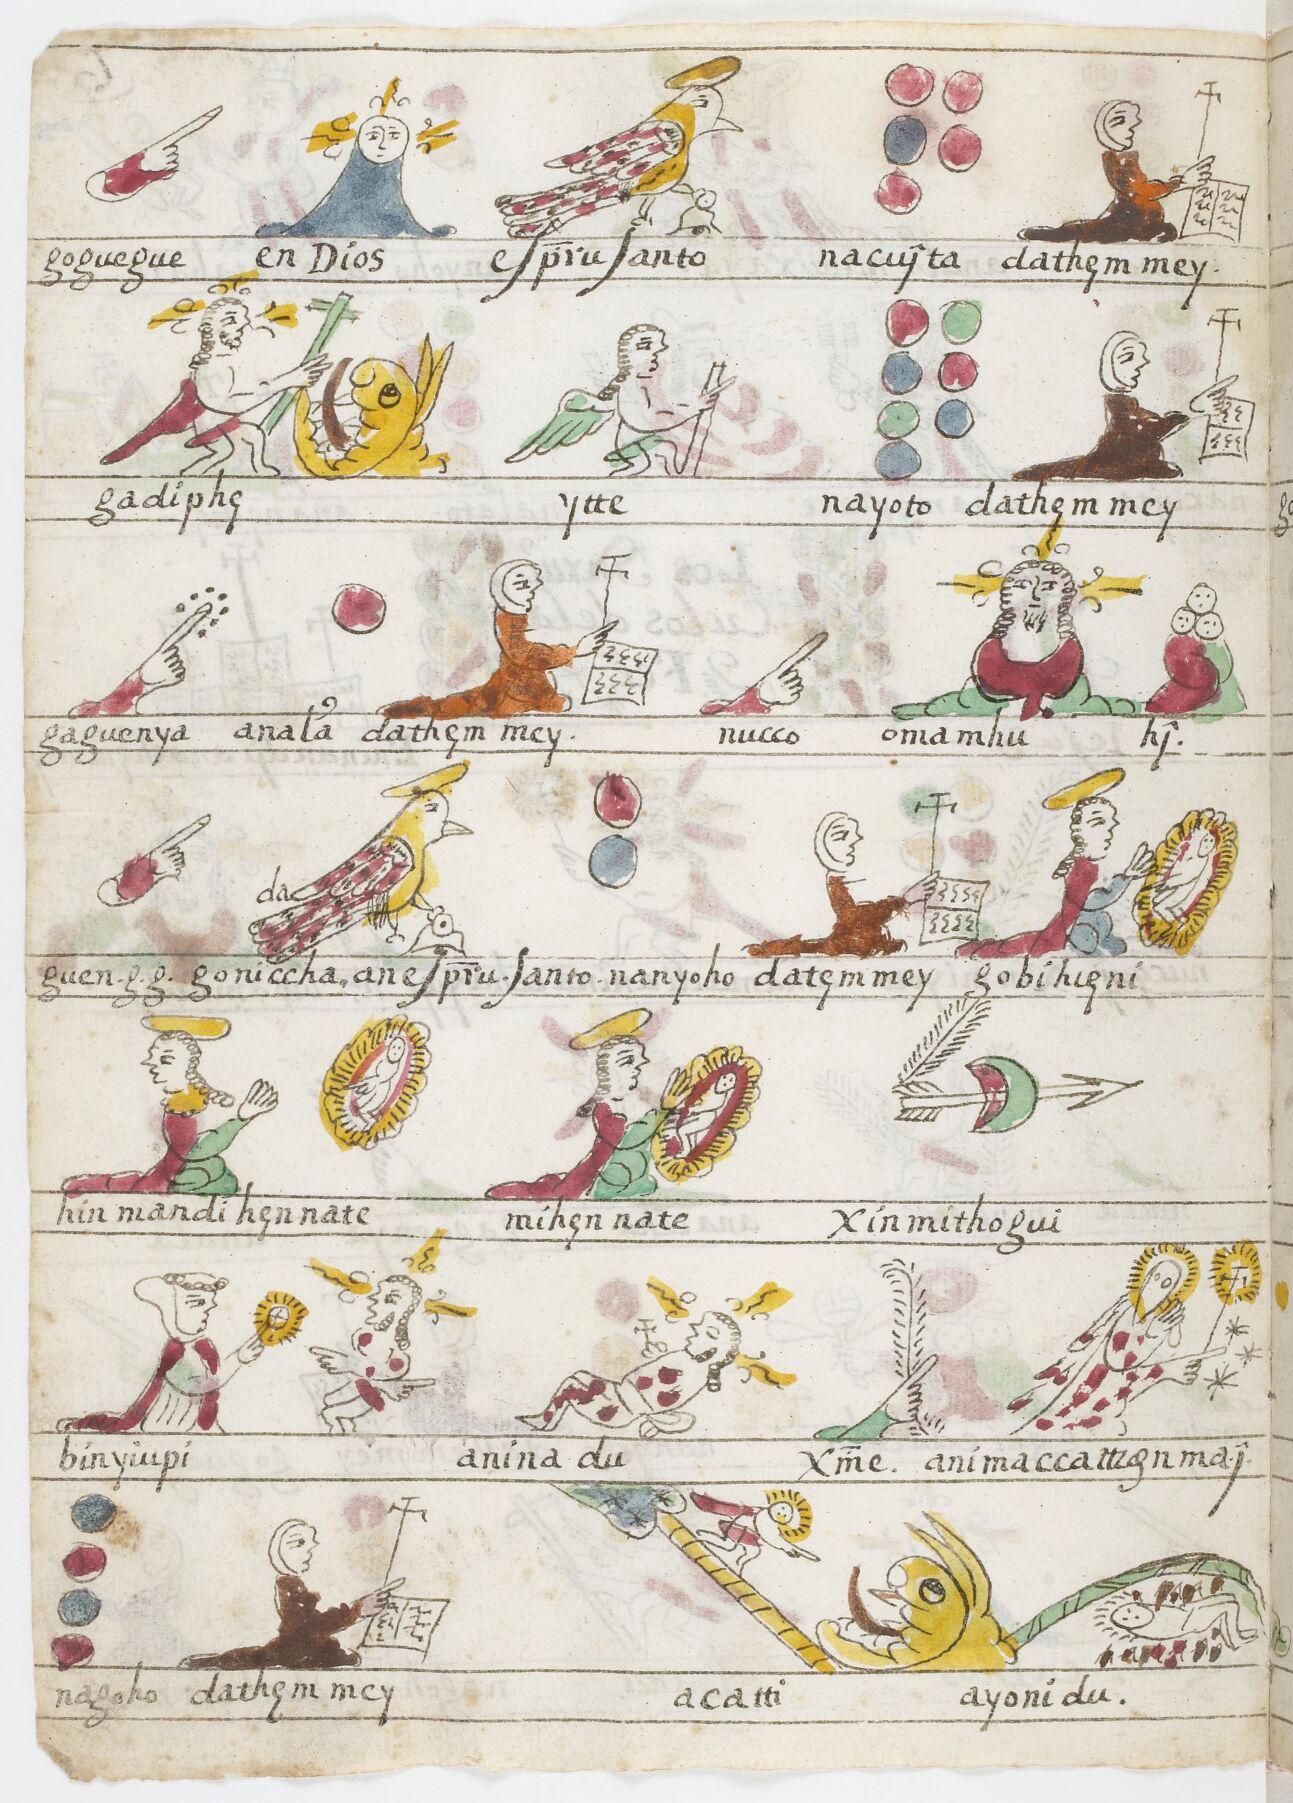 goguegue en Dios espr̄iu santo nacuy̑ta dathęm mey.
gadiphę ytte nayoto dathęm mey
gaguenya anala dathęm mey. nucco omamhu hy̑.
da
guen.g.g. goniccha, an espr̄iu. santo. nanyoho datęmmey gobihięni
hin mandi hęn nate mihęn nate Xinmithogui
binyiupi anina du Xm̄e.
nagoho dathęm mey acatti ayoni du.